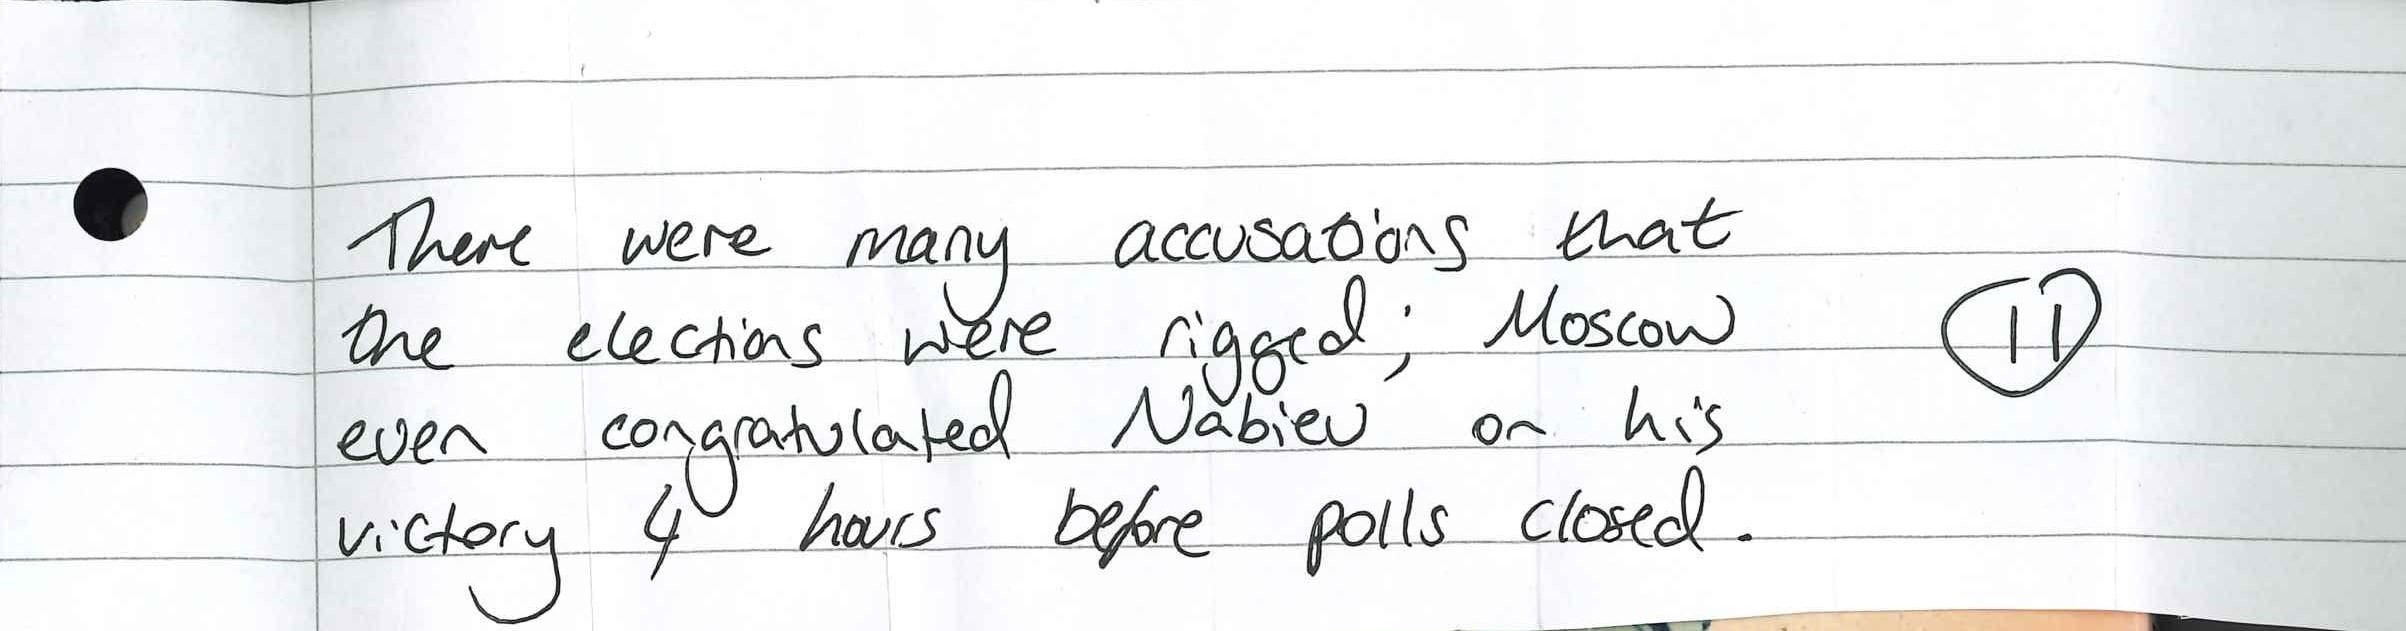 There were many accusations that
the elections were rigged; Moscow
even congratulated Nabiev on his
victory 4 hours before polls closed.
11